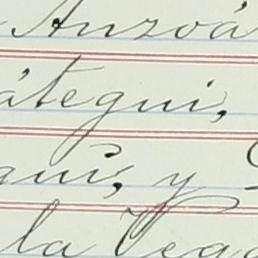 Anzoá
átegui,
gui, y
la Vega